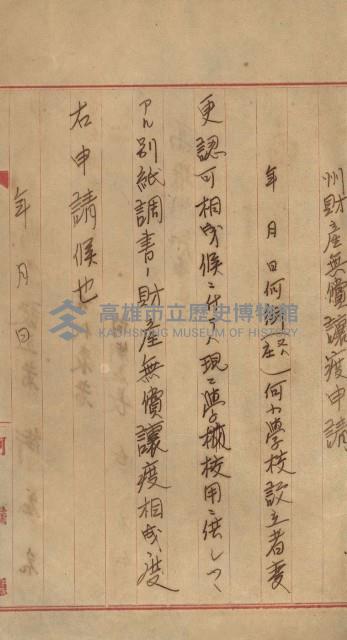 州財産無償讓渡申請
年 月 日何街(又ハ庄)何小學校設立者変
更認可相成候ニ付テハ現ニ學校校用ニ供シツヽ
アル別紙調書ノ財産無償讓渡相成度
右申請候也
年 月 日
高雄市立歷史博物館
KAOHSIUNG MUSEUM OF HISTORY